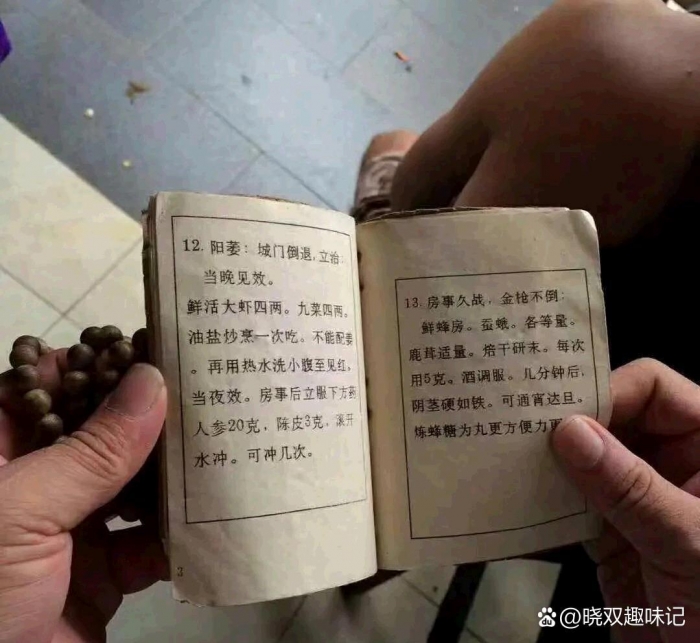 12. 阳萎：城门倒退，立治：
当晚见效。
鲜活大虾四两。九菜四两。
油盐炒烹一次吃。不能配姜
。再用热水洗小腹至见红，
当夜效。房事后立服下方药
人参20克，陈皮3克，滚开
水冲。可冲几次。
3
13. 房事久战，金枪不倒：
鲜蜂房。蚕蛾。各等量。
鹿茸适量。焙干研末。每次
用5克。酒调服。几分钟后，
阴茎硬如铁。可通宵达旦。
炼蜂糖为丸更方便力
@晓双趣味记